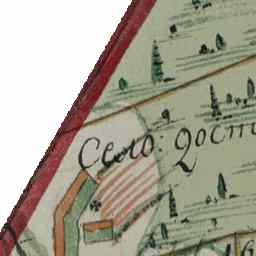 Село: дост